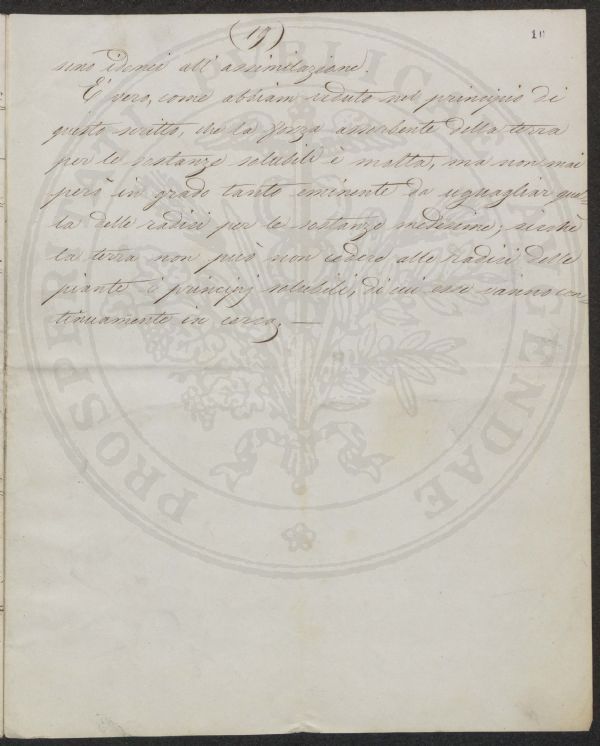 (19)
10
sino idonei all' assimilazione.
E' vero, come abbiam veduto nel principio di
questo scritto, che la forza assorbente della terra
per le sostanze solubili è molta, ma non mai
però in grado tanto eminente da uguagliar quel-
la delle radici per le sostanze medesime; sicchè
la terra non può non cedere alle radici delle
piante i principj solubili, di cui esse vanno con-
tinuamente in cerca. —
PROSPERITATI PUBLICAE AUGENDAE